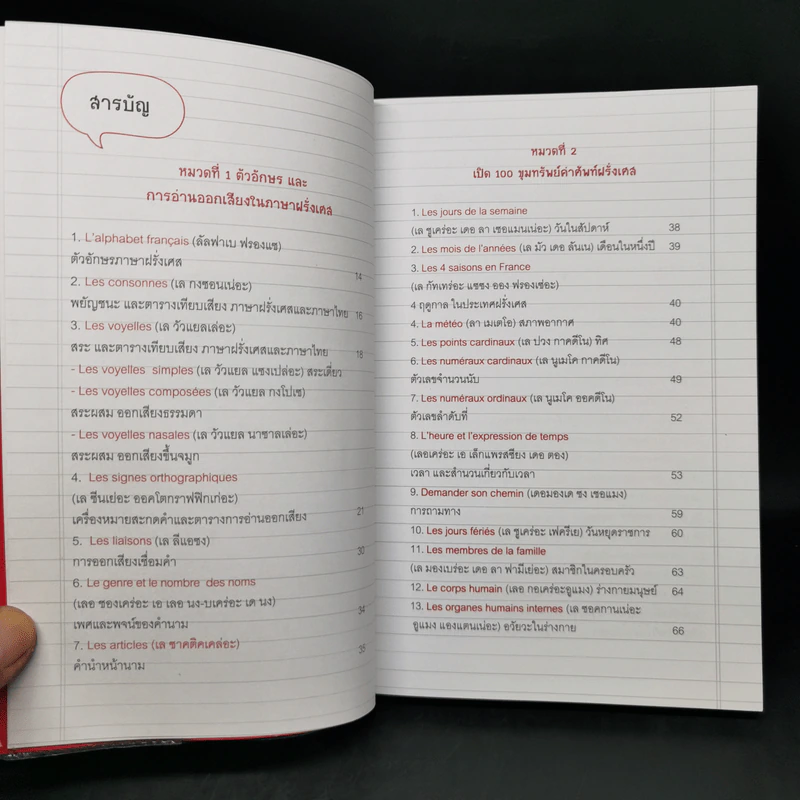 สารบัญ
หมวดที่ 1 ตัวอักษร และ
การอ่านออกเสียงในภาษาฝรั่งเศส
1. L'alphabet français (ลัลฟาเบ ฟรองแซ)
ตัวอักษรภาษาฝรั่งเศส 14
2. Les consonnes (เล กงซอนเน่อะ)
พยัญชนะ และตารางเทียบเสียง ภาษาฝรั่งเศสและภาษาไทย 16
3. Les voyelles (เล วัวแยลเล่อะ)
สระ และตารางเทียบเสียง ภาษาฝรั่งเศสและภาษาไทย 18
- Les voyelles simples (เล วัวแยล แซงเปล่อะ) สระเดี่ยว
- Les voyelles composées (เล วัวแยล กงโปเซ)
สระผสม ออกเสียงธรรมดา
- Les voyelles nasales (เล วัวแยล นาซาลเล่อะ)
สระผสม ออกเสียงขึ้นจมูก
4. Les signes orthographiques
(เล ซีนเย่อะ ออคโตกราฟฟิกเก่อะ)
เครื่องหมายสะกดคำและตารางการอ่านออกเสียง 21
5. Les liaisons (เล ลีแอซง)
การออกเสียงเชื่อมคำ 30
6. Le genre et le nombre des noms
(เลอ ชองเคร่อะ เอ เลอ นง-บเคร่อะ เด นง)
เพศและพจน์ของคำนาม 34
7. Les articles (เล ซาคติคเคล่อะ) 35
คำนำหน้านาม
หมวดที่ 2
เปิด 100 ขุมทรัพย์คำศัพท์ฝรั่งเศส
1. Les jours de la semaine
(เล ชูเคร่อะ เดอ ลา เซอแมนเน่อะ) วันในสัปดาห์ 38
2. Les mois de l'années (เล มัว เดอ ลันเน) เดือนในหนึ่งปี 39
3. Les 4 saisons en France
(เล กัทเทร่อะ แซซง ออง ฟรองเซ่อะ)
4 ฤดูกาล ในประเทศฝรั่งเศส 40
4. La météo (ลา เมเตโอ) สภาพอากาศ 40
5. Les points cardinaux (เล ปวง กาคดีโน) ทิศ 48
6. Les numéraux cardinaux (เล นูเมโค กาคดีโน)
ตัวเลขจำนวนนับ 49
7. Les numéraux ordinaux (เล นูเมโค ออคดีโน)
ตัวเลขลำดับที่ 52
8. L'heure et l'expression de temps
(เลอเคร่อะ เอ เล็กแพรสซียง เดอ ตอง)
เวลา และสำนวนเกี่ยวกับเวลา 53
9. Demander son chemin (เดอมองเด ซง เชอแมง)
การถามทาง 59
10. Les jours fériés (เล ชูเคร่อะ เฟครีเย) วันหยุดราชการ 60
11. Les membres de la famille
(เล มองเบร่อะ เดอ ลา ฟามีเย่อะ) สมาชิกในครอบครัว 63
12. Le corps humain (เลอ กอเคร่อะอูแมง) ร่างกายมนุษย์ 64
13. Les organes humains internes (เล ซอคกานเน่อะ
อูแมง แองแตนเน่อะ) อวัยวะในร่างกาย 66